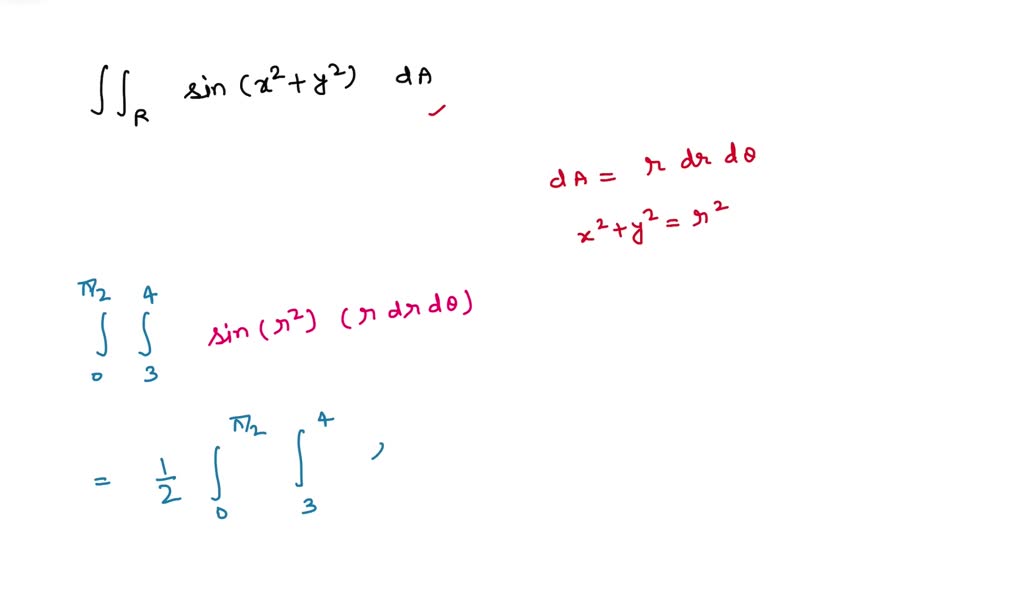 ∫∫_R sin(x²+y²) dA
dA = r dr dθ
x²+y² = r²
∫_0^{π/2} ∫_3^4 sin(r²) (r dr dθ)
= 1/2 ∫_0^{π/2} ∫_3^4